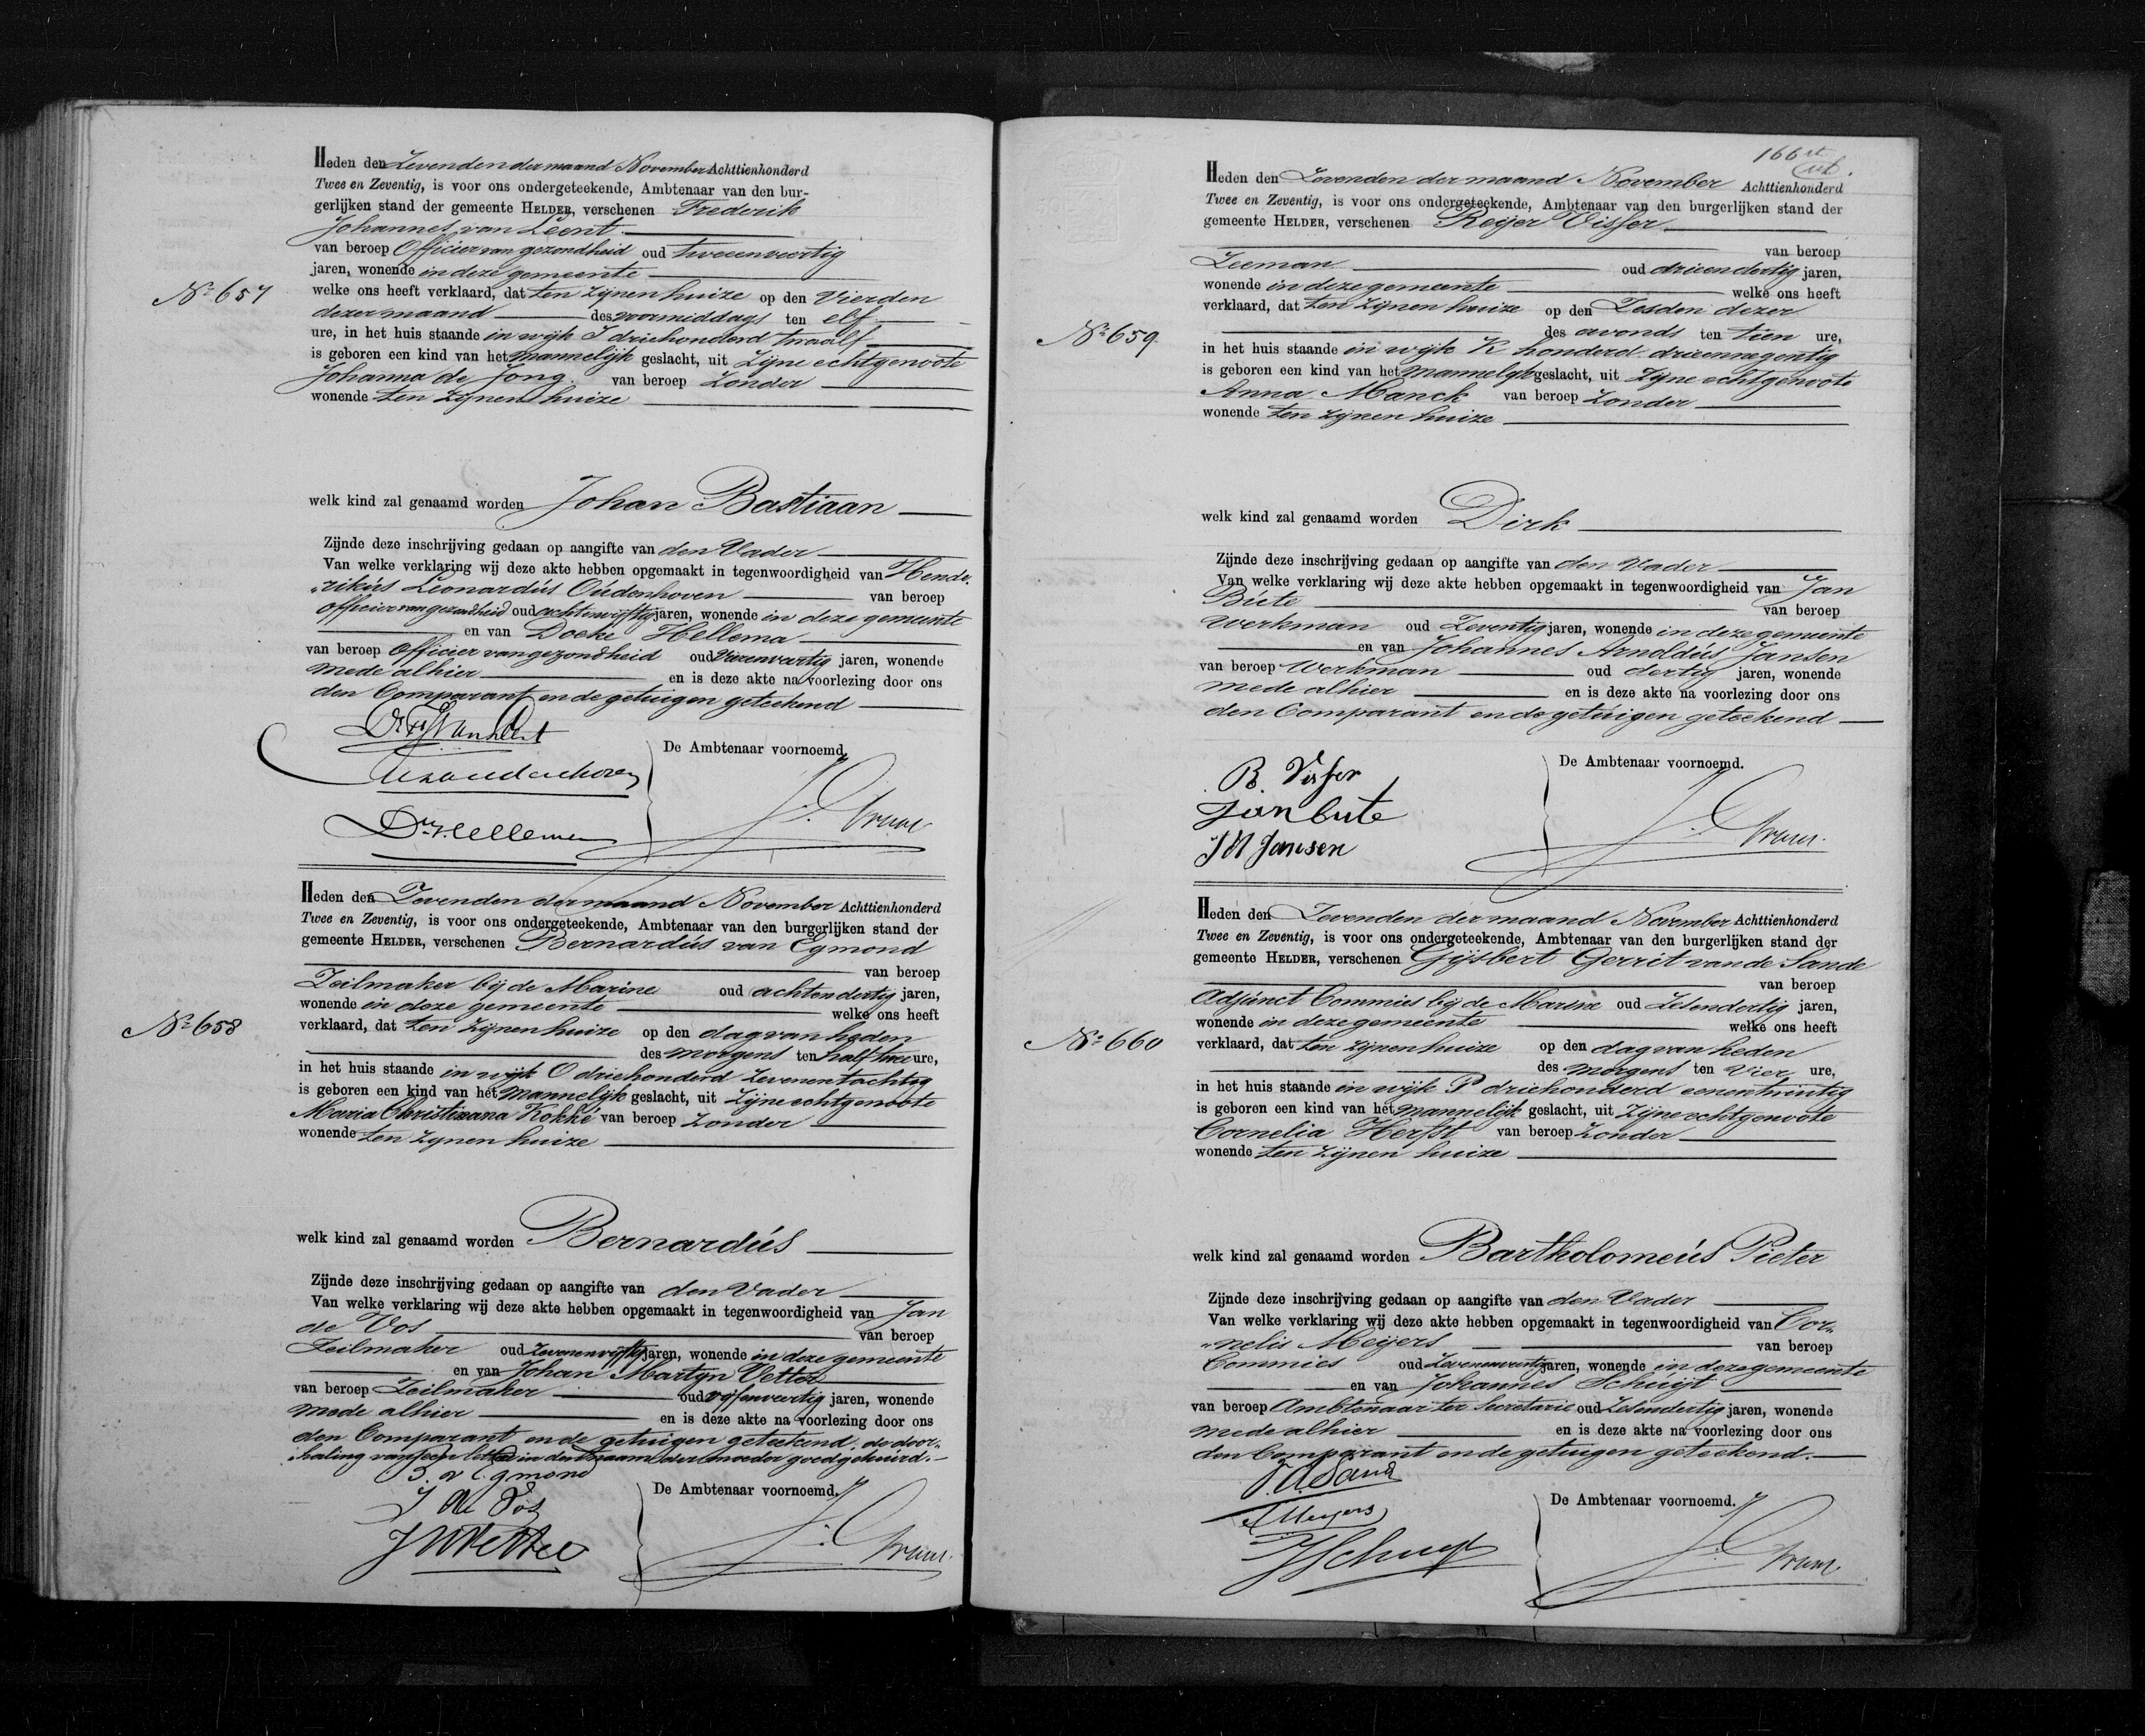 Heden den Zevenden der maand November Achttienhonderd
Twee en Zeventig, is voor ons ondergeteekende, Ambtenaar van den bur-
gerlijken stand der gemeente HELDER, verschenen Frederik
Johannes van Leent
van beroep Officier van gezondheid oud tweeenveertig
jaren, wonende in deze gemeente
No 657
welke ons heeft verklaard, dat ten zijnen huize op den Vierden
dezer maand des voormiddags ten elf
ure, in het huis staande in wijk I driehonderd twaalf
is geboren een kind van het Mannelijk geslacht, uit Zijne echtgenoote
Johanna de Jong van beroep Zonder
wonende ten zijnen huize
welk kind zal genaamd worden Johan Bastiaan
Zijnde deze inschrijving gedaan op aangifte van den Vader
Van welke verklaring wij deze akte hebben opgemaakt in tegenwoordigheid van Hende-
„rikus Leonardus Oudenhoven van beroep
officier van gezondheid oud achtenvijftig jaren, wonende in deze gemeente
en van Doeke Hellema
van beroep Officier van gezondheid oud Vierenveertig jaren, wonende
mede alhier en is deze akte na voorlezing door ons
den Comparant en de getuigen geteekend
De Ambtenaar voornoemd.
Heden den Zevenden der maand November Achttienhonderd
Twee en Zeventig, is voor ons ondergeteekende, Ambtenaar van den burgerlijken stand der
gemeente HELDER, verschenen Bernardus van Egmond
van beroep
Zeilmaker bij de Marine oud achtendertig jaren,
wonende in deze gemeente welke ons heeft
No 658
verklaard, dat ten zijnen huize op den dag van heden
des morgens ten half twee ure,
in het huis staande in wijk O driehonderd Zevenentachtig
is geboren een kind van het Mannelijk geslacht, uit Zijne echtgenoote
Maria Christiaana Kokké van beroep Zonder
wonende ten zijnen huize
welk kind zal genaamd worden Bernardus
Zijnde deze inschrijving gedaan op aangifte van den Vader
Van welke verklaring wij deze akte hebben opgemaakt in tegenwoordigheid van Jan
de Vos van beroep
Zeilmaker oud Zevenenvijftig jaren, wonende in deze gemeente
en van Johan Martijn Vetter
van beroep Zeilmaker oud vijfenveertig jaren, wonende
mede alhier en is deze akte na voorlezing door ons
den Comparant en de getuigen geteekend, de door-
haling van een letter in den naam der moeder goedgekeurd.
B. v Egmond
J de Vos
De Ambtenaar voornoemd.
166ste
Heden den Zevenden der maand November Achttienhonderd
Twee en Zeventig, is voor ons ondergeteekende, Ambtenaar van den burgerlijken stand der
gemeente HELDER, verschenen Reijer Visser
van beroep
Zeeman oud drieendertig jaren,
wonende in deze gemeente welke ons heeft
verklaard, dat ten zijnen huize op den Zesden dezer
No 659.
des avonds ten tien ure,
in het huis staande in wijk K honderd drieennegentig
is geboren een kind van het Mannelijk geslacht, uit Zijne echtgenoote
Anna Manck van beroep Zonder
wonende ten zijnen huize
welk kind zal genaamd worden Dirk
Zijnde deze inschrijving gedaan op aangifte van den Vader
Van welke verklaring wij deze akte hebben opgemaakt in tegenwoordigheid van Jan
Bute van beroep
Werkman oud Zeventig jaren, wonende in deze gemeente
en van Johannes Arnoldus Jansen
van beroep Werkman oud dertig jaren, wonende
mede alhier en is deze akte na voorlezing door ons
den Comparant en de getuigen geteekend
R. Visser
De Ambtenaar voornoemd.
Jan bute
J A Jansen
Heden den Zevenden der maand November Achttienhonderd
Twee en Zeventig, is voor ons ondergeteekende, Ambtenaar van den burgerlijken stand der
gemeente HELDER, verschenen Gijsbert Gerrit van de Sande
van beroep
Adjunct Commies bij de Marine oud Zesendertig jaren,
wonende in deze gemeente welke ons heeft
No 660
verklaard, dat ten zijnen huize op den dag van heden
des morgens ten Vier ure,
in het huis staande in wijk P driehonderd eenentwintig
is geboren een kind van het Mannelijk geslacht, uit Zijne echtgenoote
Cornelia Herfst van beroep Zonder
wonende ten zijnen huize
welk kind zal genaamd worden Bartholomeus Pieter
Zijnde deze inschrijving gedaan op aangifte van den Vader
Van welke verklaring wij deze akte hebben opgemaakt in tegenwoordigheid van Cor-
„nelis Meijers van beroep
Commies oud Zevenenveertig jaren, wonende in deze gemeente
en van Johannes Schuijt
van beroep Ambtenaar ter Secretarie oud Zesendertig jaren, wonende
mede alhier en is deze akte na voorlezing door ons
den Comparant en de getuigen geteekend.
De Ambtenaar voornoemd.